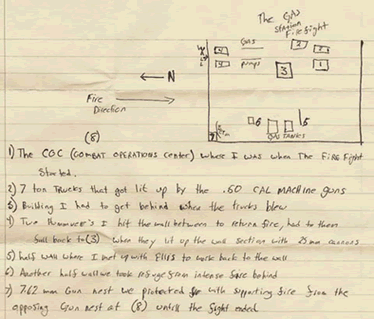 The Gas
Station
Firefight
Gas
pumps
4
4
2
2
3
1
N
Fire
Direction
6
5
7
GAS TANKS
(8)
1) The COC (Combat Operations Center) where I was when the Fire Fight
Started.
2) 7 ton Trucks that got lit up by the .60 CAL MACHINE guns
3) Building I had to get behind when the trucks blew
4) Two Humvee's I hit the wall between to return fire, had to then
fall back to (3) when they lit up the wall section with 25mm cannons
5) half wall where I met up with Ellis to work back to the wall
6) Another half wall we took refuge from intense fire behind
7) 7.62mm Gun nest we protected with supporting fire from the
opposing Gun nest at (8) untill the fight ended